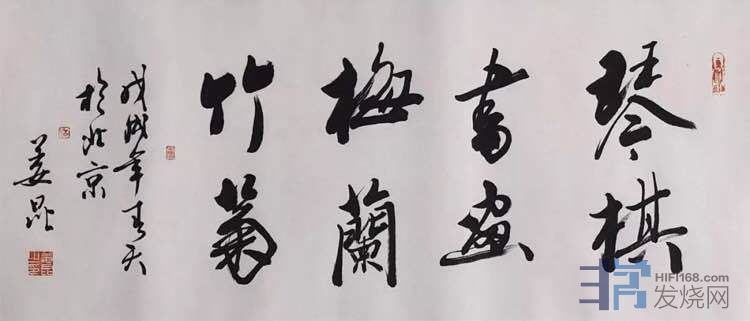 琴棋
書画
梅蘭
竹菊
戊戌年春天
於北京
姜昆
HIFI168.com
发烧网